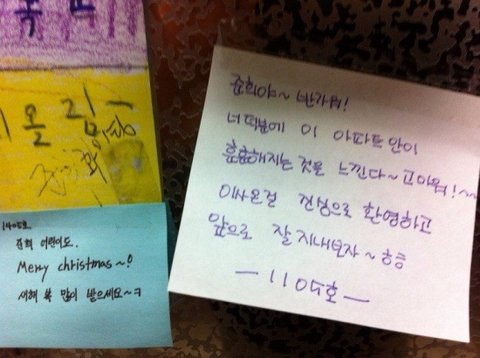 올림
1405호.
준희 어린이도.
Merry christmas~!
새해 복 많이 받으세요~ㅋ
준희야~ 반가워!
너 덕분에 이 아파트 안이
훈훈해지는 것을 느낀다~ 고마워!~~
이사온걸 진심으로 환영하고
앞으로 잘 지내보자~ ㅎㅎ
— 1105호 —